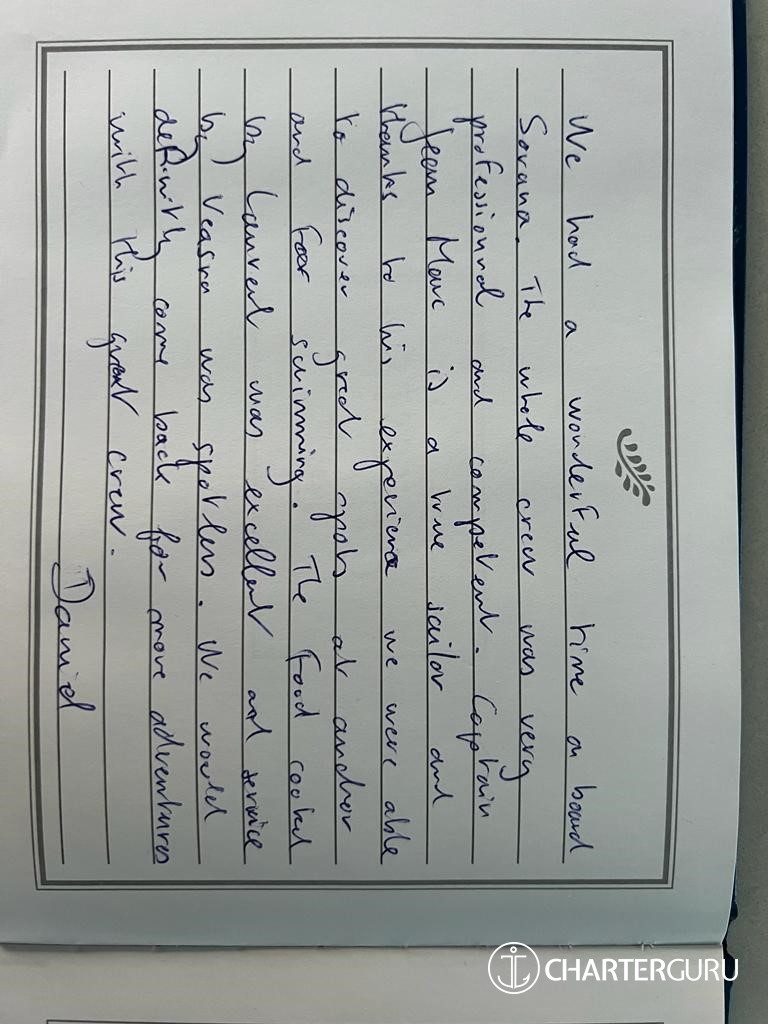 We had a wonderful time on board
Sovana. The whole crew was very
professionnal and competent. Captain
Jean Marc is a true sailor and
thanks to his experience we were able
to discover great spots at anchor
and for swimming. The food cooked
by Laurent was excellent and service
by Veasna was spotless. We would
definitly come back for more adventures
with this great crew.
Daniel
CHARTERGURU